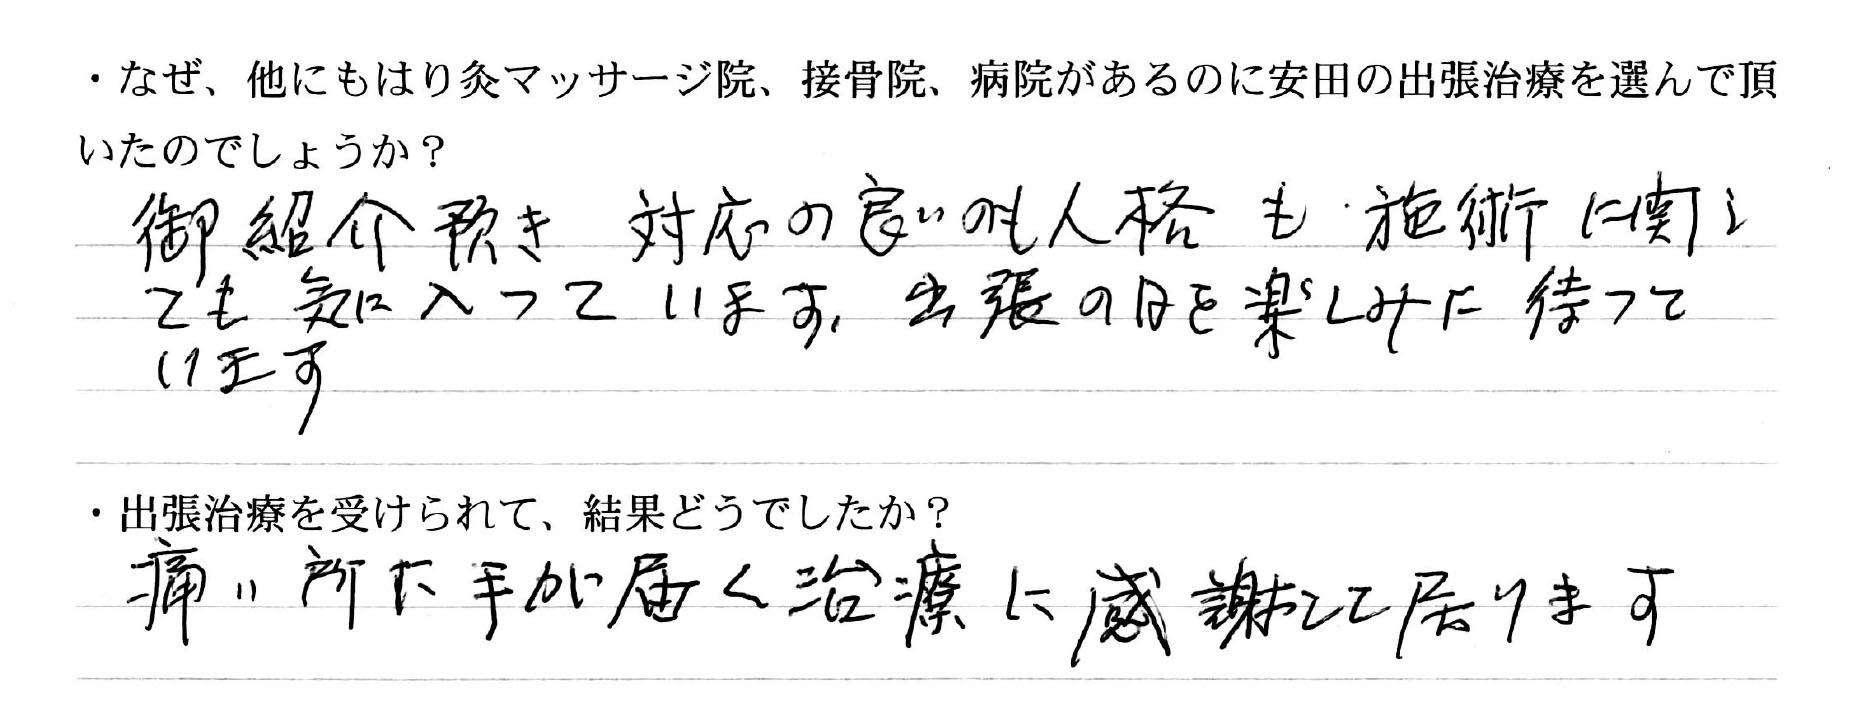 ・なぜ、他にもはり灸マッサージ院、接骨院、病院があるのに安田の出張治療を選んで頂
いたのでしょうか？
御紹介頂き 対応の良いのも人格も 施術に関し
ても気に入っています、出張の日を楽しみに待って
います
・出張治療を受けられて、結果どうでしたか？
痛い所に手が届く治療に感謝して居ります